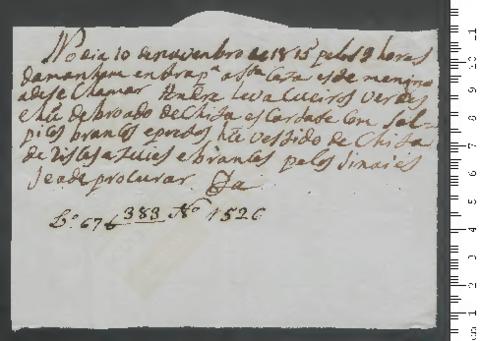 No dia 10 de novenbro de 1815 pelos 9 horas
damanham entra pª a Stª Caza este menino
adese Chamar Andre leva Cueiros verdes
e hũ de broado de Chita escarlate Com Sal-
picos brancos e pretos hũ vestido de Chita
de Listas azuies e brancas pelos Sinaies
Seade procurar
Lº 67 f 383 Nº 1526